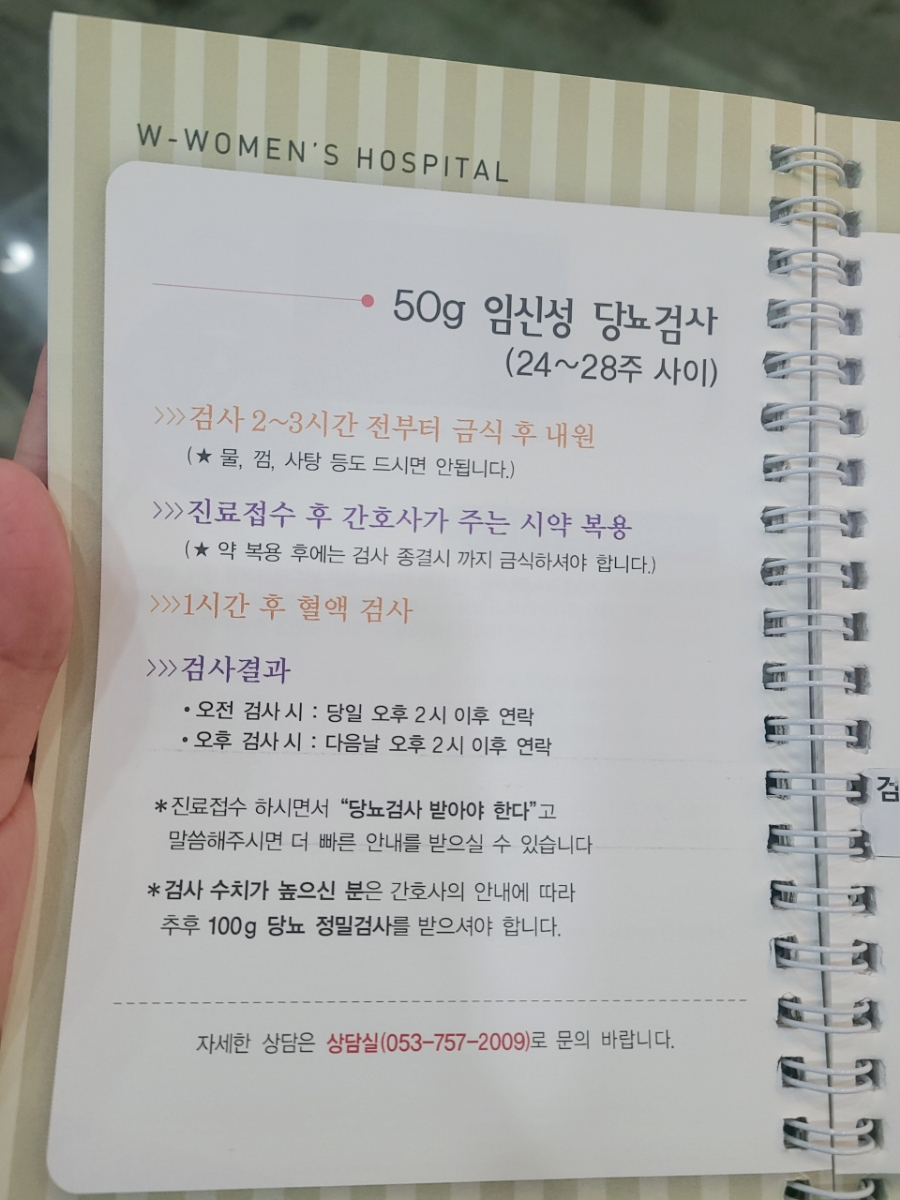 W-WOMEN'S HOSPITAL
50g 임신성 당뇨검사
(24~28주 사이)
>>>검사 2~3시간 전부터 금식 후 내원
(★ 물, 껌, 사탕 등도 드시면 안됩니다.)
>>>진료접수 후 간호사가 주는 시약 복용
(★ 약 복용 후에는 검사 종결시 까지 금식하셔야 합니다.)
>>>1시간 후 혈액 검사
>>>검사결과
• 오전 검사 시 : 당일 오후 2시 이후 연락
• 오후 검사 시 : 다음날 오후 2시 이후 연락
*진료접수 하시면서 “당뇨검사 받아야 한다”고
말씀해주시면 더 빠른 안내를 받으실 수 있습니다
*검사 수치가 높으신 분은 간호사의 안내에 따라
추후 100g 당뇨 정밀검사를 받으셔야 합니다.
자세한 상담은 상담실(053-757-2009)로 문의 바랍니다.
검